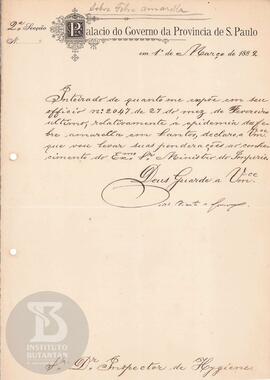 Sobre Febre amarella
2ª Secção
Palacio do Governo da Provincia de S. Paulo
Nº
em 1º de Março de 1889
Inteirado de quanto me expõe em seu
officio nº 2047 de 27 do mez de Fevereiro
ultimo, relativamente à epidemia da fe-
bre amarella em Santos, declaro a Vmce
que vou levar suas ponderações ao conhe-
cimento do Exmo Sr Ministro do Imperio.
Deus Guarde a Vmce
Sr. Dr. Inspector de Hygiene
INSTITUTO
BUTANTAN